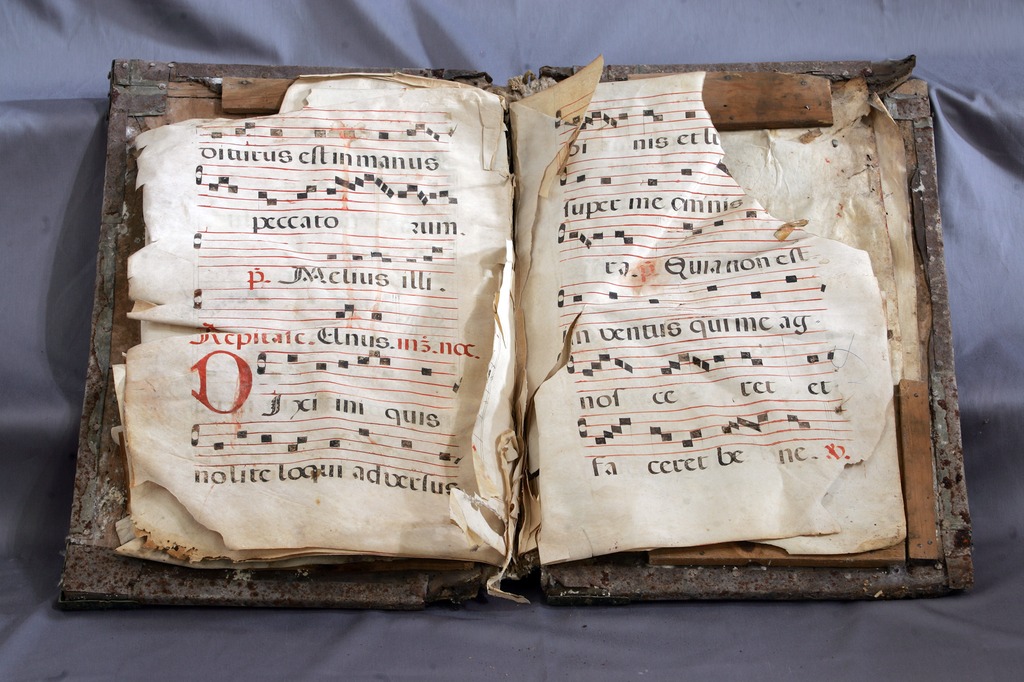 diturus est in manus
peccato rum.
p. Melius illi.
Repitate. Elnus. in 3. noc.
Dixi ini quis
nolite loqui adversus
nis et li
super me omnis
ra. p Quia non est
in ventus qui me ag-
nos ce ret et
fa ceret be ne. v.